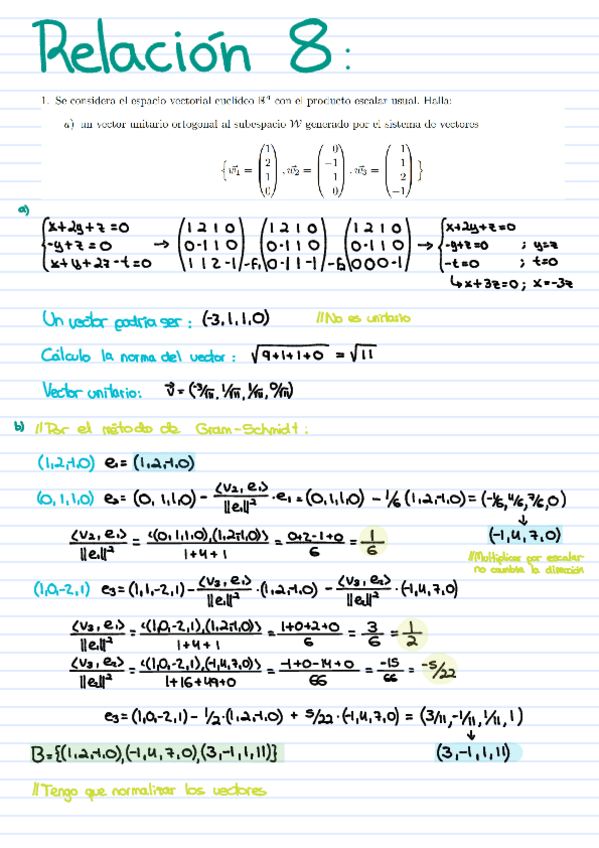 Relación 8:
1. Se considera el espacio vectorial euclídeo ℝ⁴ con el producto escalar usual. Halla:
a) un vector unitario ortogonal al subespacio W generado por el sistema de vectores
{ w⃗₁ = (1 2 1 0), w⃗₂ = (0 −1 1 0), w⃗₃ = (1 1 2 −1) }
a)
{x+2y+z=0 → (1 2 1 0) (1 2 1 0) (1 2 1 0) → {x+2y+z=0
-y+z=0 (0 -1 1 0) (0 -1 1 0) (0 -1 1 0) -y+z=0 ; y=z
x+y+2z-t=0 (1 1 2 -1)-F₁ (0 -1 1 -1)-F₂ (0 0 0 -1) -t=0 ; t=0
↳x+3z=0; x=-3z
Un vector podría ser: (-3,1,1,0) //No es unitario
Cálculo la norma del vector: √9+1+1+0 = √11
Vector unitario: v⃗ = (-3/√11, 1/√11, 1/√11, 0/√11)
b) //Por el método de Gram-Schmidt:
(1,2,-1,0) e₁= (1,2,-1,0)
(0,1,1,0) e₂= (0,1,1,0) - <v₂,e₁>/||e₁||² · e₁ = (0,1,1,0) - 1/6 (1,2,-1,0) = (-1/6, 4/6, 7/6, 0)
↓
<v₂,e₁>/||e₁||² = <(0,1,1,0),(1,2,-1,0)>/1+4+1 = 0+2-1+0/6 = 1/6 (-1,4,7,0)
//Multiplicar por escalar
no cambia la dirección
(1,0,-2,1) e₃= (1,1,-2,1) - <v₃,e₁>/||e₁||² · (1,2,-1,0) - <v₃,e₂>/||e₂||² · (-1,4,7,0)
<v₃,e₁>/||e₁||² = <(1,0,-2,1),(1,2,-1,0)>/1+4+1 = 1+0+2+0/6 = 3/6 = 1/2
<v₃,e₂>/||e₂||² = <(1,0,-2,1),(-1,4,7,0)>/1+16+49+0 = -1+0-14+0/66 = -15/66 = -5/22
e₃= (1,0,-2,1) - 1/2·(1,2,-1,0) + 5/22·(-1,4,7,0) = (3/11, -1/11, 1/11, 1)
↓
B={(1,2,-1,0),(-1,4,7,0),(3,-1,1,11)} (3,-1,1,11)
//Tengo que normalizar los vectores